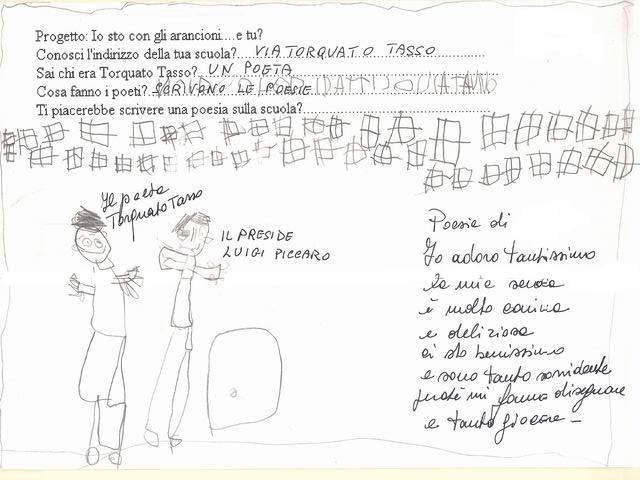 Progetto: Io sto con gli arancioni....e tu?
Conosci l'indirizzo della tua scuola? VIA TORQUATO TASSO
Sai chi era Torquato Tasso? UN POETA
Cosa fanno i poeti? SCRIVONO LE POESIE
Ti piacerebbe scrivere una poesia sulla scuola?
Il poeta
Torquato Tasso
IL PRESIDE
LUIGI PICCARO
Poesia di
Io adoro tantissimo
la mia scuola
è molto carina
e deliziosa
ci sto benissimo
e sono tanto sorridente
perché mi fanno disegnare
e tanto giocare -